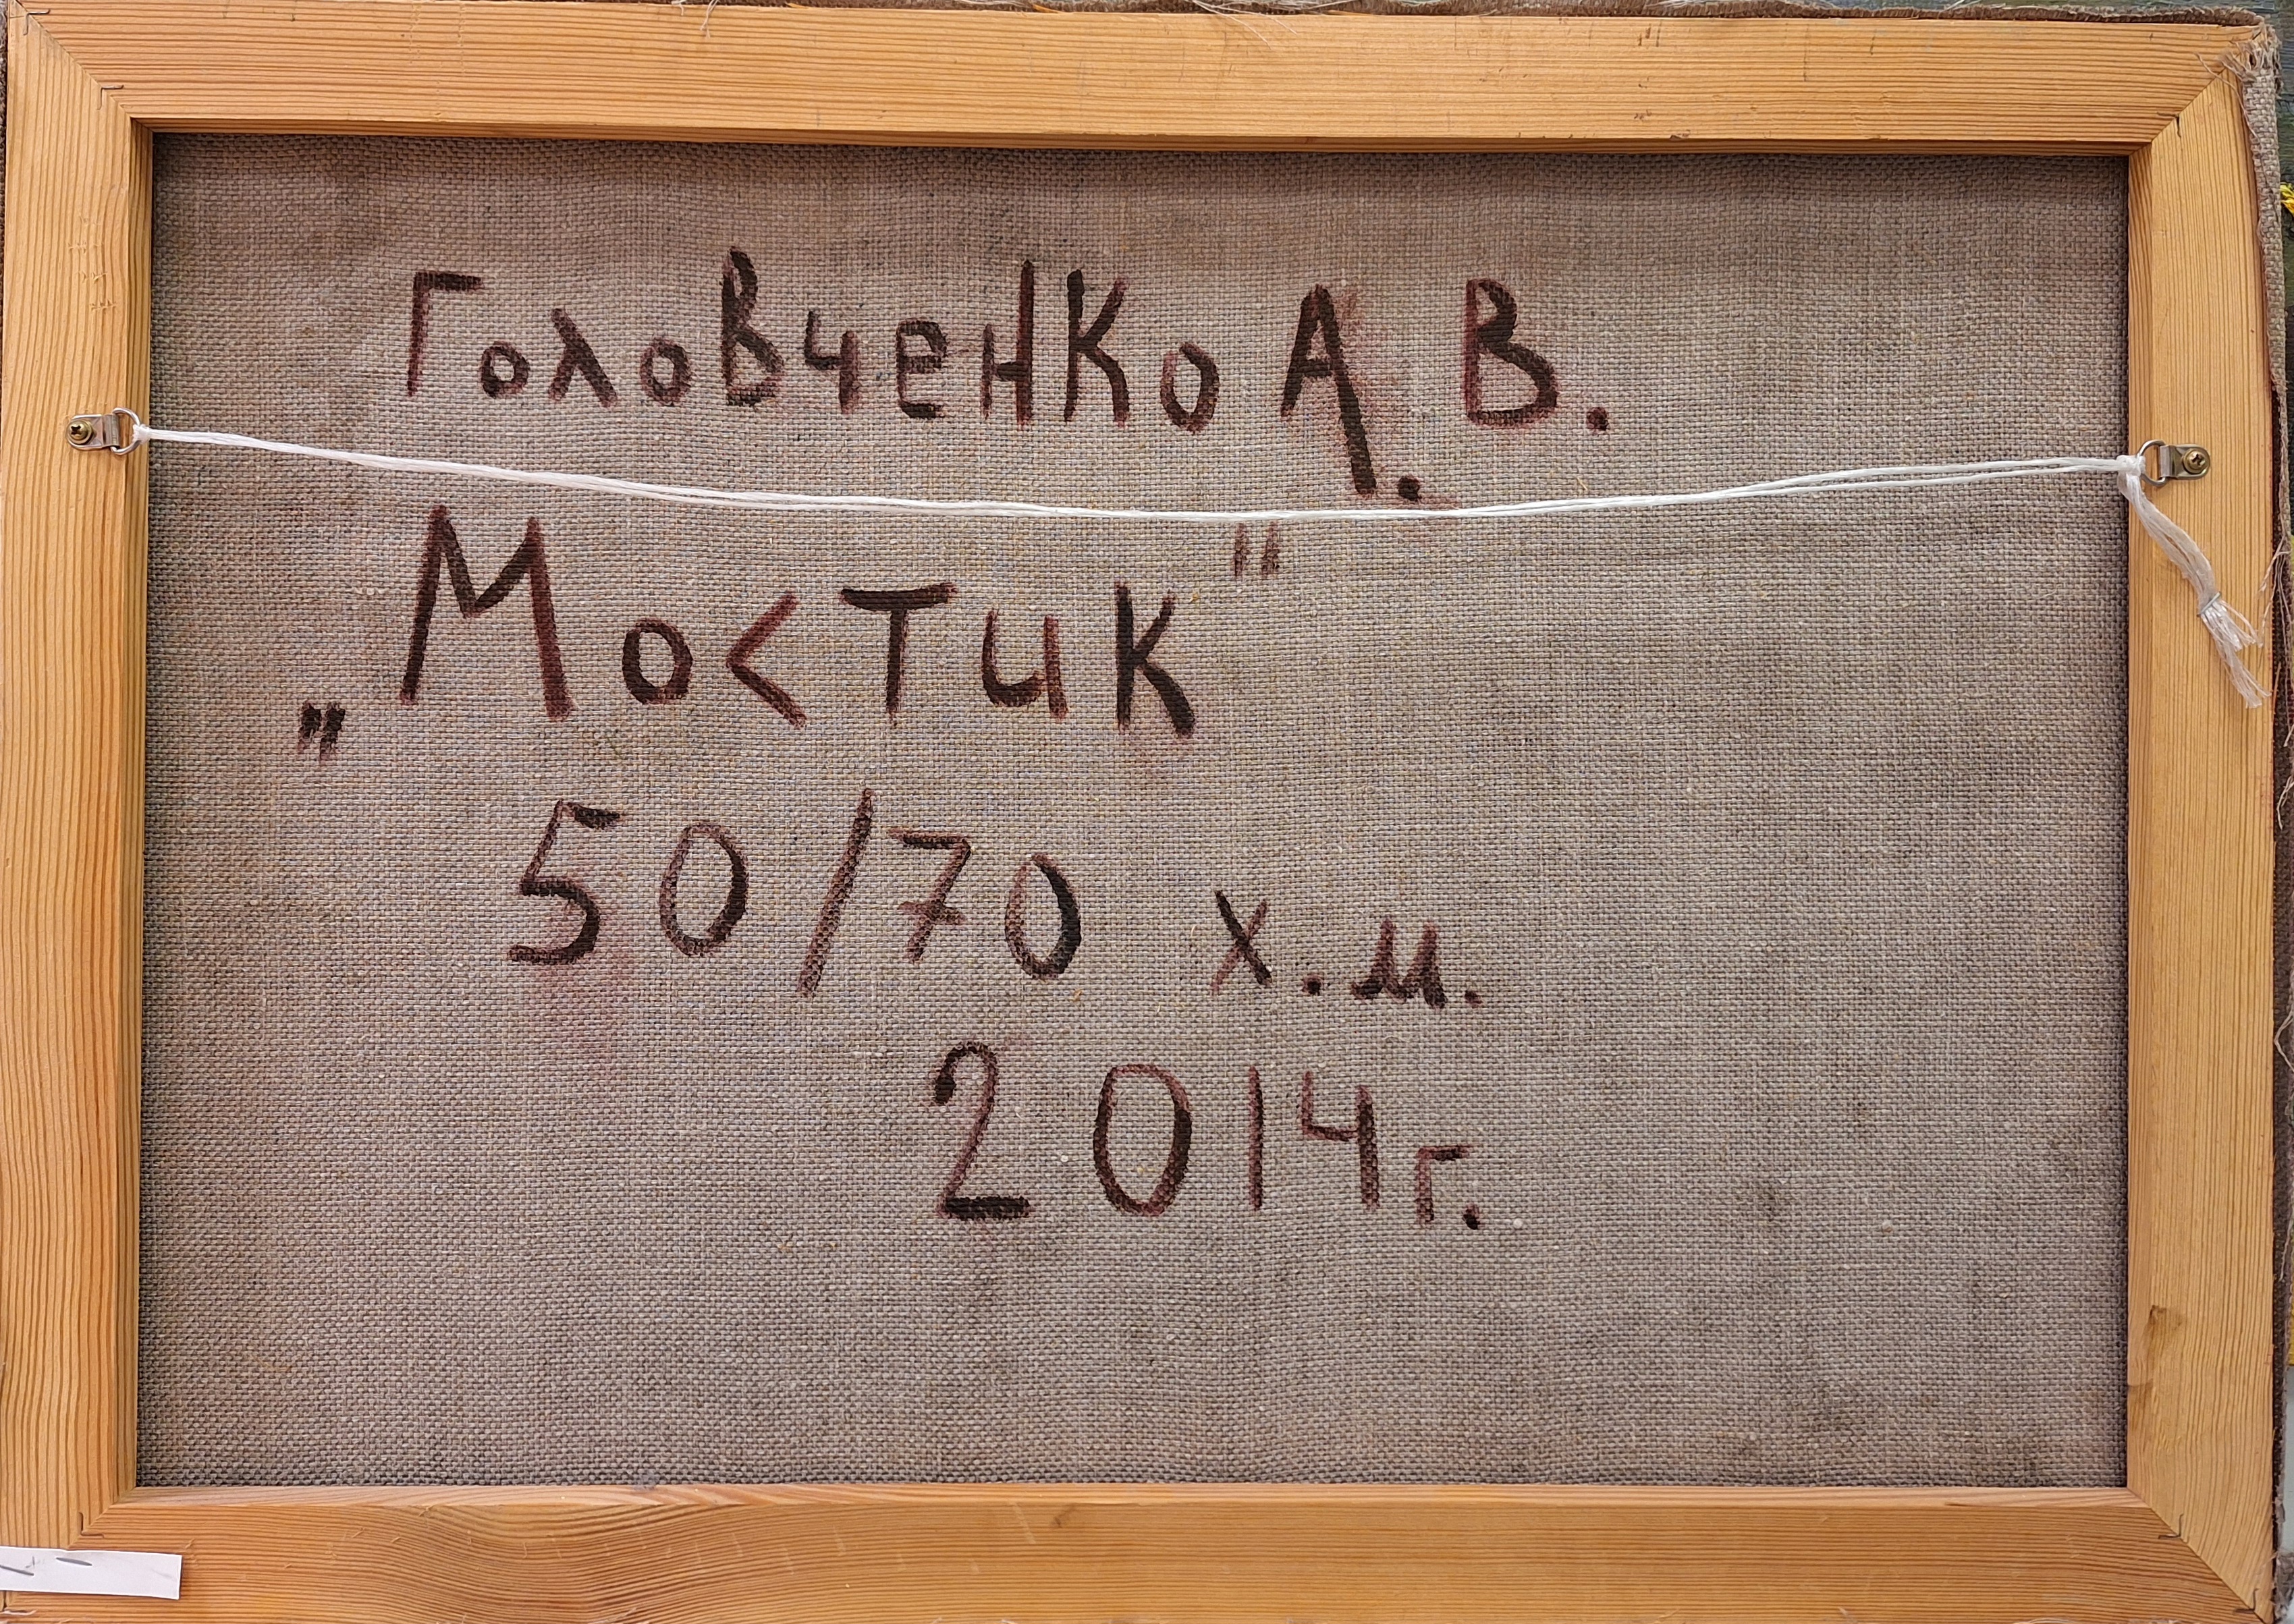 Головченко А. В.
„Мостик"
50/70 х.м.
2014г.